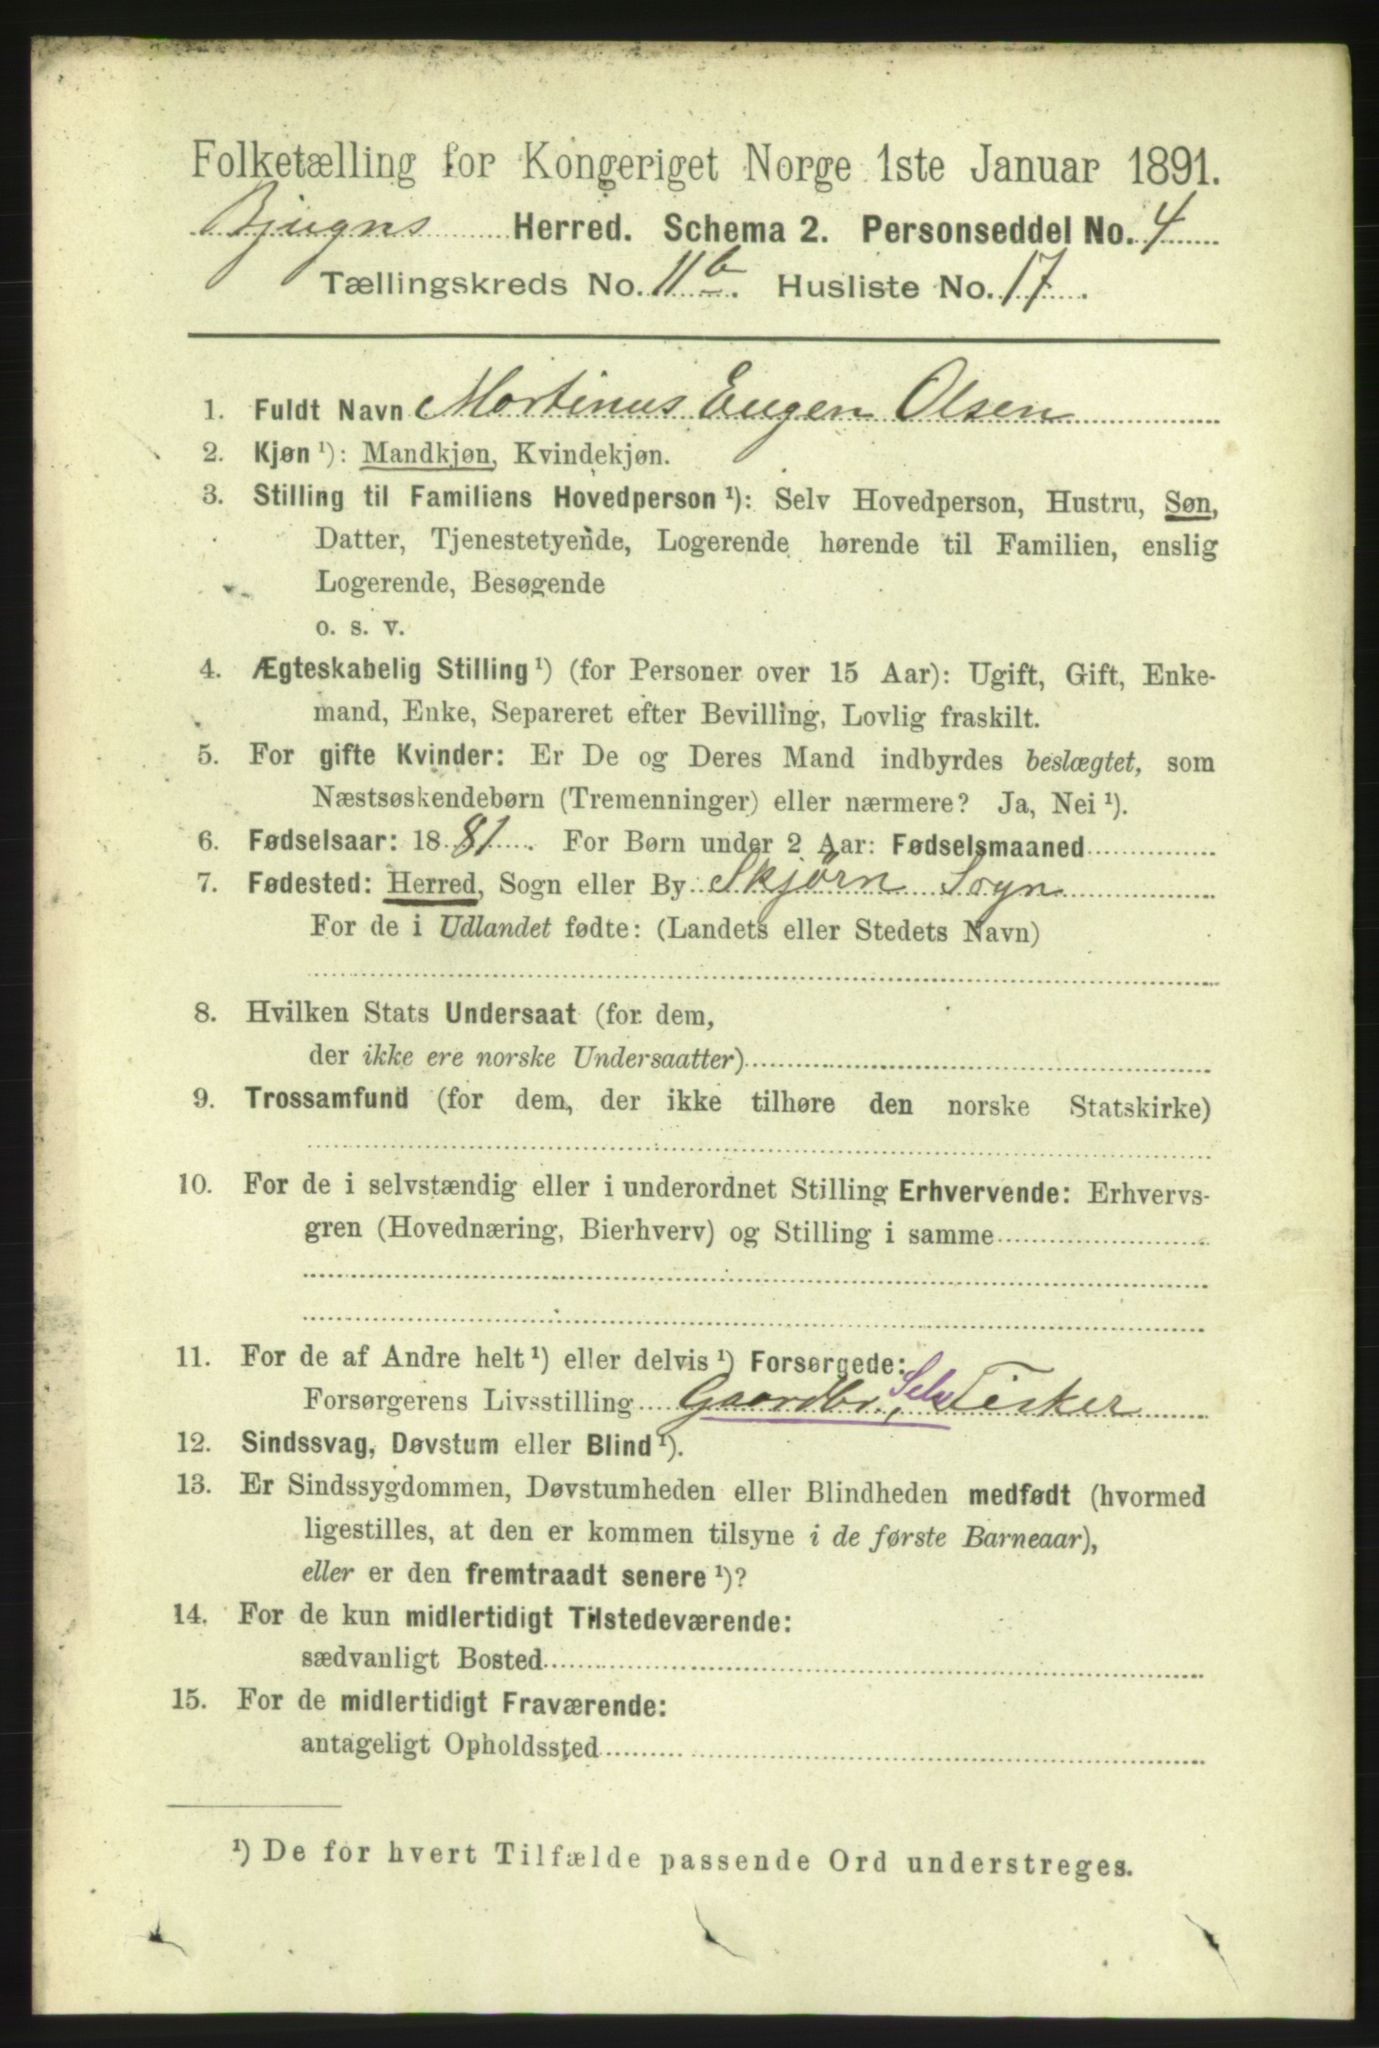 Folketælling for Kongeriget Norge 1ste Januar 1891.
Bjugns Herred. Schema 2. Personseddel No. 4
Tællingskreds No. 11 b. Husliste No. 17.
1. Fuldt Navn Martinus Eugen Olsen
2. Kjøn ¹): Mandkjøn, Kvindekjøn.
3. Stilling til Familiens Hovedperson ¹): Selv Hovedperson, Hustru, Søn,
Datter, Tjenestetyende, Logerende hørende til Familien, enslig
Logerende, Besøgende
o. s. v.
4. Ægteskabelig Stilling ¹) (for Personer over 15 Aar): Ugift, Gift, Enke-
mand, Enke, Separeret efter Bevilling, Lovlig fraskilt.
5. For gifte Kvinder: Er De og Deres Mand indbyrdes beslægtet, som
Næstsøskendebørn (Tremenninger) eller nærmere? Ja, Nei ¹).
6. Fødselsaar: 1881. For Børn under 2 Aar: Fødselsmaaned
7. Fødested: Herred, Sogn eller By Skjørn Sogn
For de i Udlandet fødte: (Landets eller Stedets Navn)
8. Hvilken Stats Undersaat (for dem,
der ikke ere norske Undersaatter)
9. Trossamfund (for dem, der ikke tilhøre den norske Statskirke)
10. For de i selvstændig eller i underordnet Stilling Erhvervende: Erhvervs-
gren (Hovednæring, Bierhverv) og Stilling i samme
11. For de af Andre helt ¹) eller delvis ¹) Forsørgede:
Forsørgerens Livsstilling Gaardbr., Selv Fisker
12. Sindssvag, Døvstum eller Blind ¹).
13. Er Sindssygdommen, Døvstumheden eller Blindheden medfødt (hvormed
ligestilles, at den er kommen tilsyne i de første Barneaar),
eller er den fremtraadt senere ¹)?
14. For de kun midlertidigt Tilstedeværende:
sædvanligt Bosted
15. For de midlertidigt Fraværende:
antageligt Opholdssted
¹) De for hvert Tilfælde passende Ord understreges.